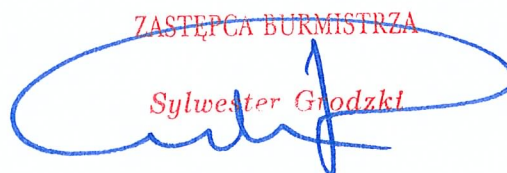 ZASTĘPCA BURMISTRZA
Sylwester Grodzki